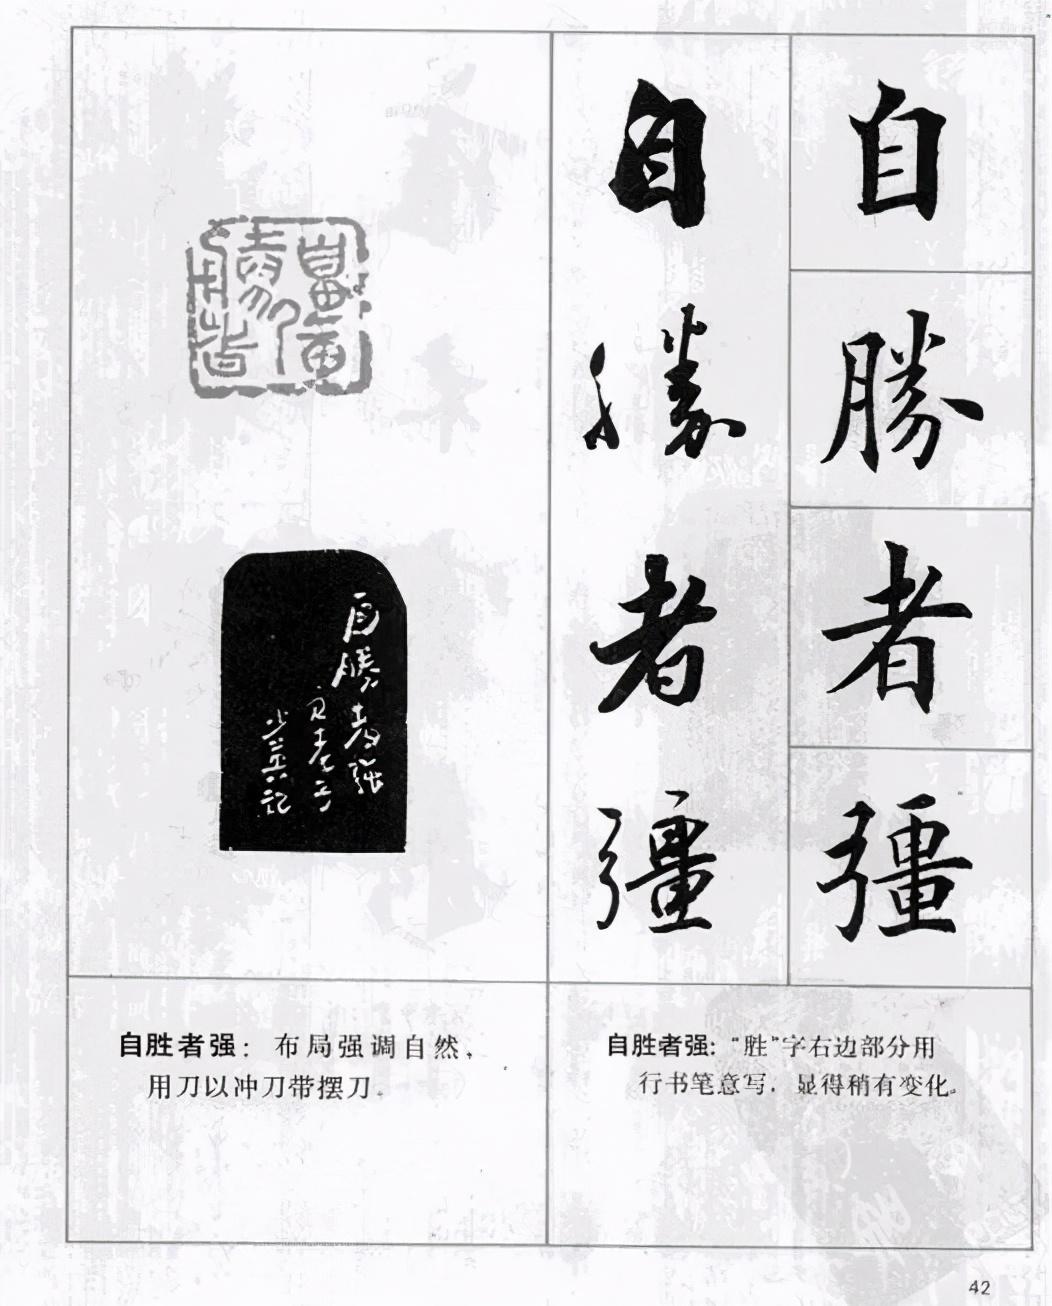 自勝者彊
自勝者彊
自勝者強
見老子
自胜者强：布局强调自然，
用刀以冲刀带摆刀。
自胜者强：“胜”字右边部分用
行书笔意写，显得稍有变化。
42